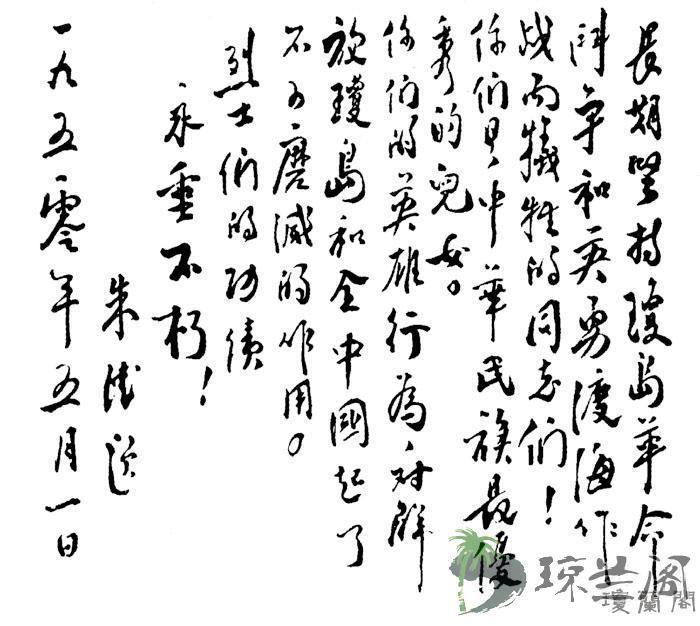 長期坚持瓊島革命
鬥争和英勇渡海作
战而犧牲的同志们！
你们是中華民族最優
秀的兒女。
你们的英雄行為，对解
放瓊島和全中國起了
不可磨滅的作用。
烈士们的功績
永垂不朽！
朱德題
一九五零年五月一日
琼兰阁
瓊蘭閣